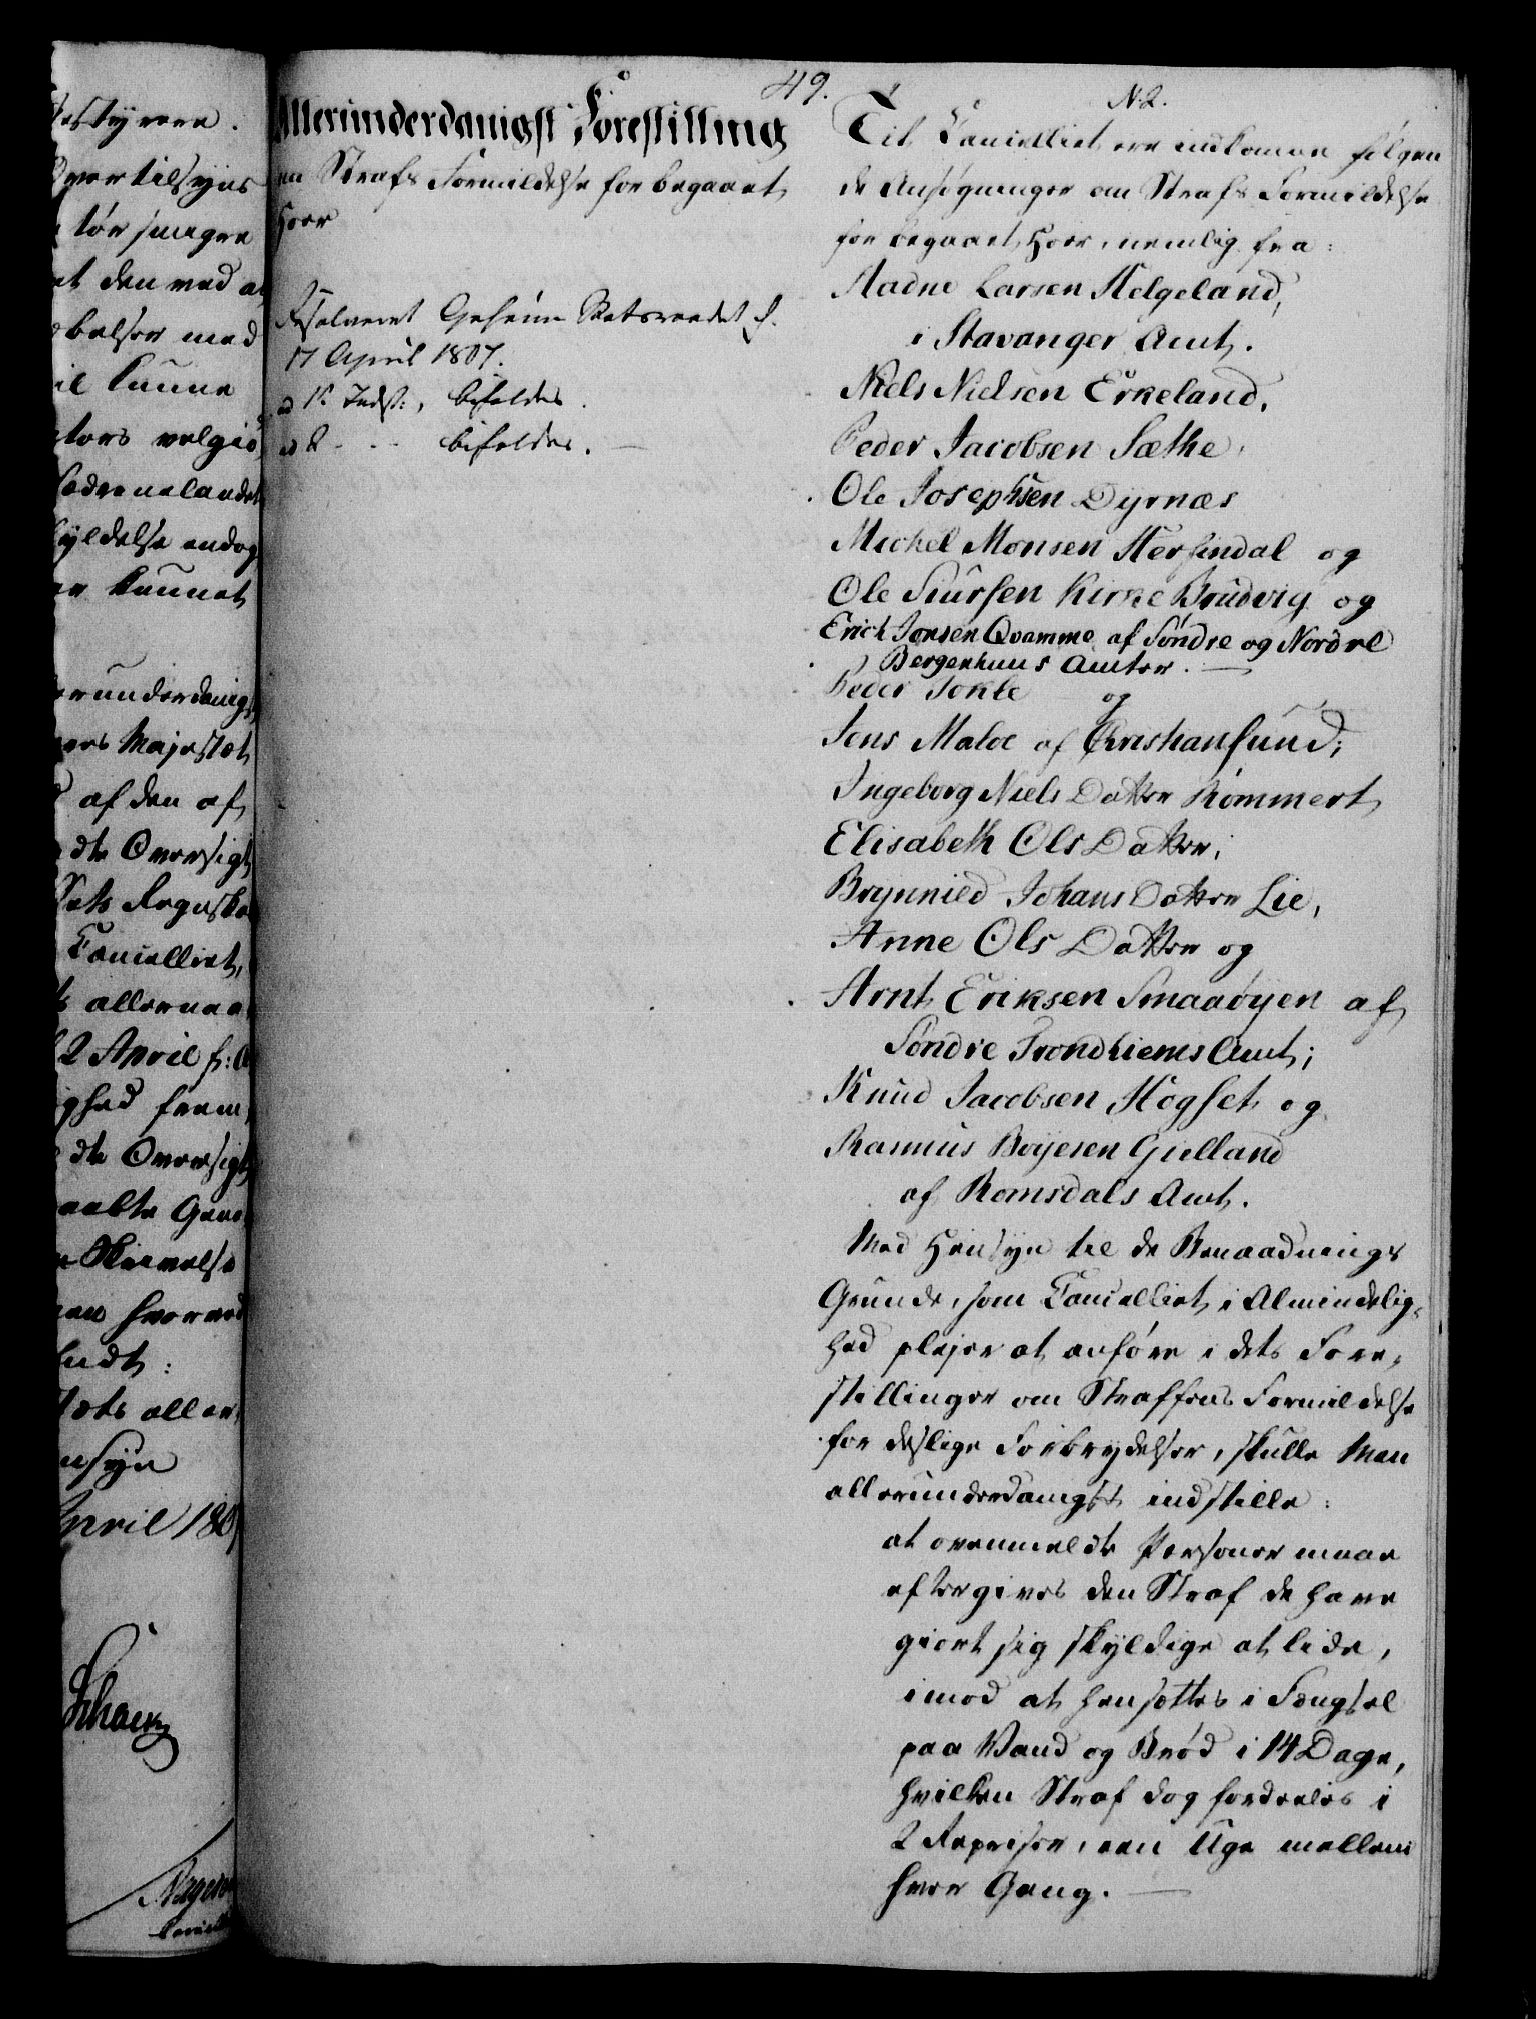 styrere.
Overtilsyns
tør smagre
et den ved a
belser med
il kunne
ctors velgiø
Lodvenelandet
kyldelse endog
er kunnet
erunderdanigs
eres Majestæt
af den af
dte Oversigt
Sets Regnska
Cancelliet,
allernaa
2 April f: A
ghed frem
dte Oversigt
aalte Gene
Skrivelse
en hvorved
endt:
tets aller,
nsyn
April 180
Schou
49.
Allerunderdanigst Forestilling
om Strafs Formildelse for begaaet
Hoer
Resolveret Geheime Statsraadet d.
17 April 1807.
ad 1e Indst:, bifaldes.
ad 2 - - - bifaldes. —
N 2.
Til Cancelliet ere indkomne følgen
de Ansøgninger om Strafs Formildelse
for begaaet Hoer, nemlig fra:
Aadne Larsen Helgeland,
i Stavanger Amt.
Niels Nielsen Erkeland,
Peder Jacobsen Sæthe,
Ole Josephsen Dyrnæs
Michel Monsen Hersindal og
Ole Siursen Kirke Brudvig og
Erich Jonsen Qvamme af Søndre og Nordre
Bergenhuus Amter. —
Peder Jokle og
Jens Maloe af Christiansund;
Ingeborg Niels Datter Rømmert
Elisabeth Ols Datter,
Brynnild Johans Datter Lie,
Anne Ols Datter og
Arnt Eriksen Smaaøyen af
Søndre Trondhiems Amt;
Knud Jacobsen Høgset og
Rasmus Boyesen Gielland
af Romsdals Amt.
Med Hensyn til de Benaadnings
Grunde, som Cancelliet i Almindelig-
hed plejer at anføre i dets Fore-
stillinger om Straffens Formildelse
for deslige Forbrydelser, skulle Man
allerunderdanigst indstille:
at ovenmeldte Personer maae
eftergives den Straf de have
giort sig skyldige at lide,
imod at hensættes i Fængsel
paa Vand og Brød i 14 Dage,
hvilken Straf dog fordeeles i
2 Repriser, een Uge mellem
hver Gang. —